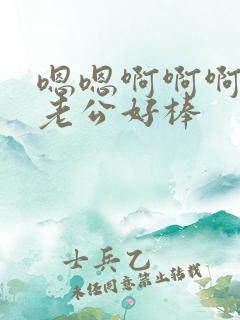 嗯嗯啊啊啊
老公好棒
士兵乙
未经同意禁止转载